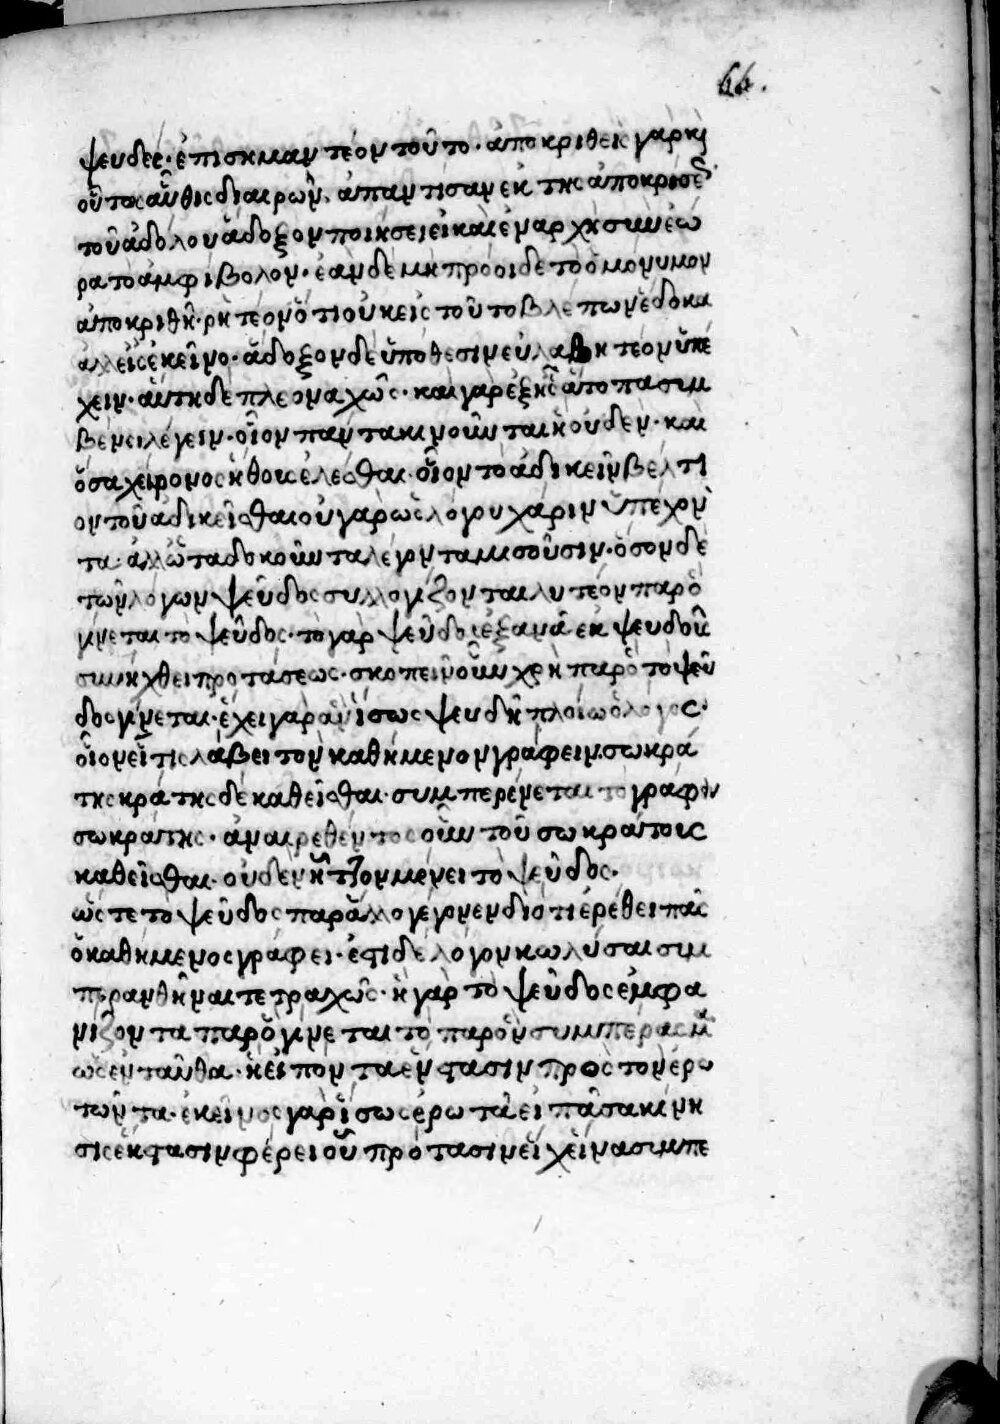 66.
ψευδες· ἐπισημαντέον τοῦτο· ἀποκριθεὶς γὰρ καὶ
οὕτως αὖθις διαιρῶν, ἀπαντῆσαν ἐκ τῆς ἀποκρίσε
τοῦ ἀδόλου ἄδοξον ποιήσειεν εἰ καὶ ἐν ἀρχῆ συνεώ
ρα τὸ ἀμφίβολον· ἐὰν δὲ μὴ προοῖδε τὸ ὁμώνυμον
ἀποκριθῆ· ῥητέον ὅτι οὐκ εἰς τοῦτο βλέπων ἔδωκα
ἀλλ' εἰς ἐκεῖνο· ἄδοξον δὲ ὑπόθεσιν εὐλαβητέον ὑπέ
χειν· αὕτη δὲ πλεοναχῶς· καὶ γὰρ ἐξ ἧς ἄτοπα συμ
βαίνει λέγειν· οἷον πάντα κινοῦνται ἢ οὐδέν· καὶ
ὅσα χείρονος ἤθους ἑλέσθαι· οἷον τὸ ἀδικεῖν βέλτι
ον τοῦ ἀδικεῖσθαι οὐ γὰρ ὡς λόγου χάριν ὑπέχον
τα· ἀλλ' ὡς τὰ δοκοῦντα λέγοντα μισοῦσιν· ὅσον δὲ
τῶν λόγων ψεῦδος συλλογίζονται λυτέον παρ' ὃ
γίνεται τὸ ψεῦδος· τὸ γὰρ ψεῦδος ἐξ ἀνά ἐκ ψευδοῦς
συνήχθει προτάσεως· σκοπεῖν οὖν χρὴ παρ' ὃ τὸ ψεῦ
δος γίνεται· ἔχει γὰρ ἂν ἴσως ψευδῆ πλείω ὁ λόγος·
οἷον εἴ τις λάβει τὸν καθήμενον γράφειν. σωκρά
της κράτης δὲ καθεῖσθαι· συμπεραίνεται τὸ γράφειν
σωκράτης· ἀναιρεθέντος οὖν τοῦ σωκράτους
καθεῖσθαι· οὐδὲν ἧττον μένει τὸ ψεῦδος·
ὥστε τὸ ψεῦδος παρ' ἄλλο γέγονεν διότι ἐρέθει πᾶς
ὁ καθήμενος γράφει· ἔστι δὲ λόγον κωλύσαι συμ
περανθῆναι τετραχῶς· ἢ γὰρ τὸ ψεῦδος ἐμφα
νίζοντα παρ' ὃ γίνεται τὸ παρὸν συμπέρασμα
ὡς ἐνταῦθα· ἢ εἰπόντα ἔνστασιν πρὸς τὸν ἐρω
τῶντα· ἐκεῖνος γὰρ ἴσως ἐρωτᾶ εἰ πᾶσα κίνη
σις ἔκστασιν φέρει οὖν πρότασιν εἰ χεῖνα συμπε